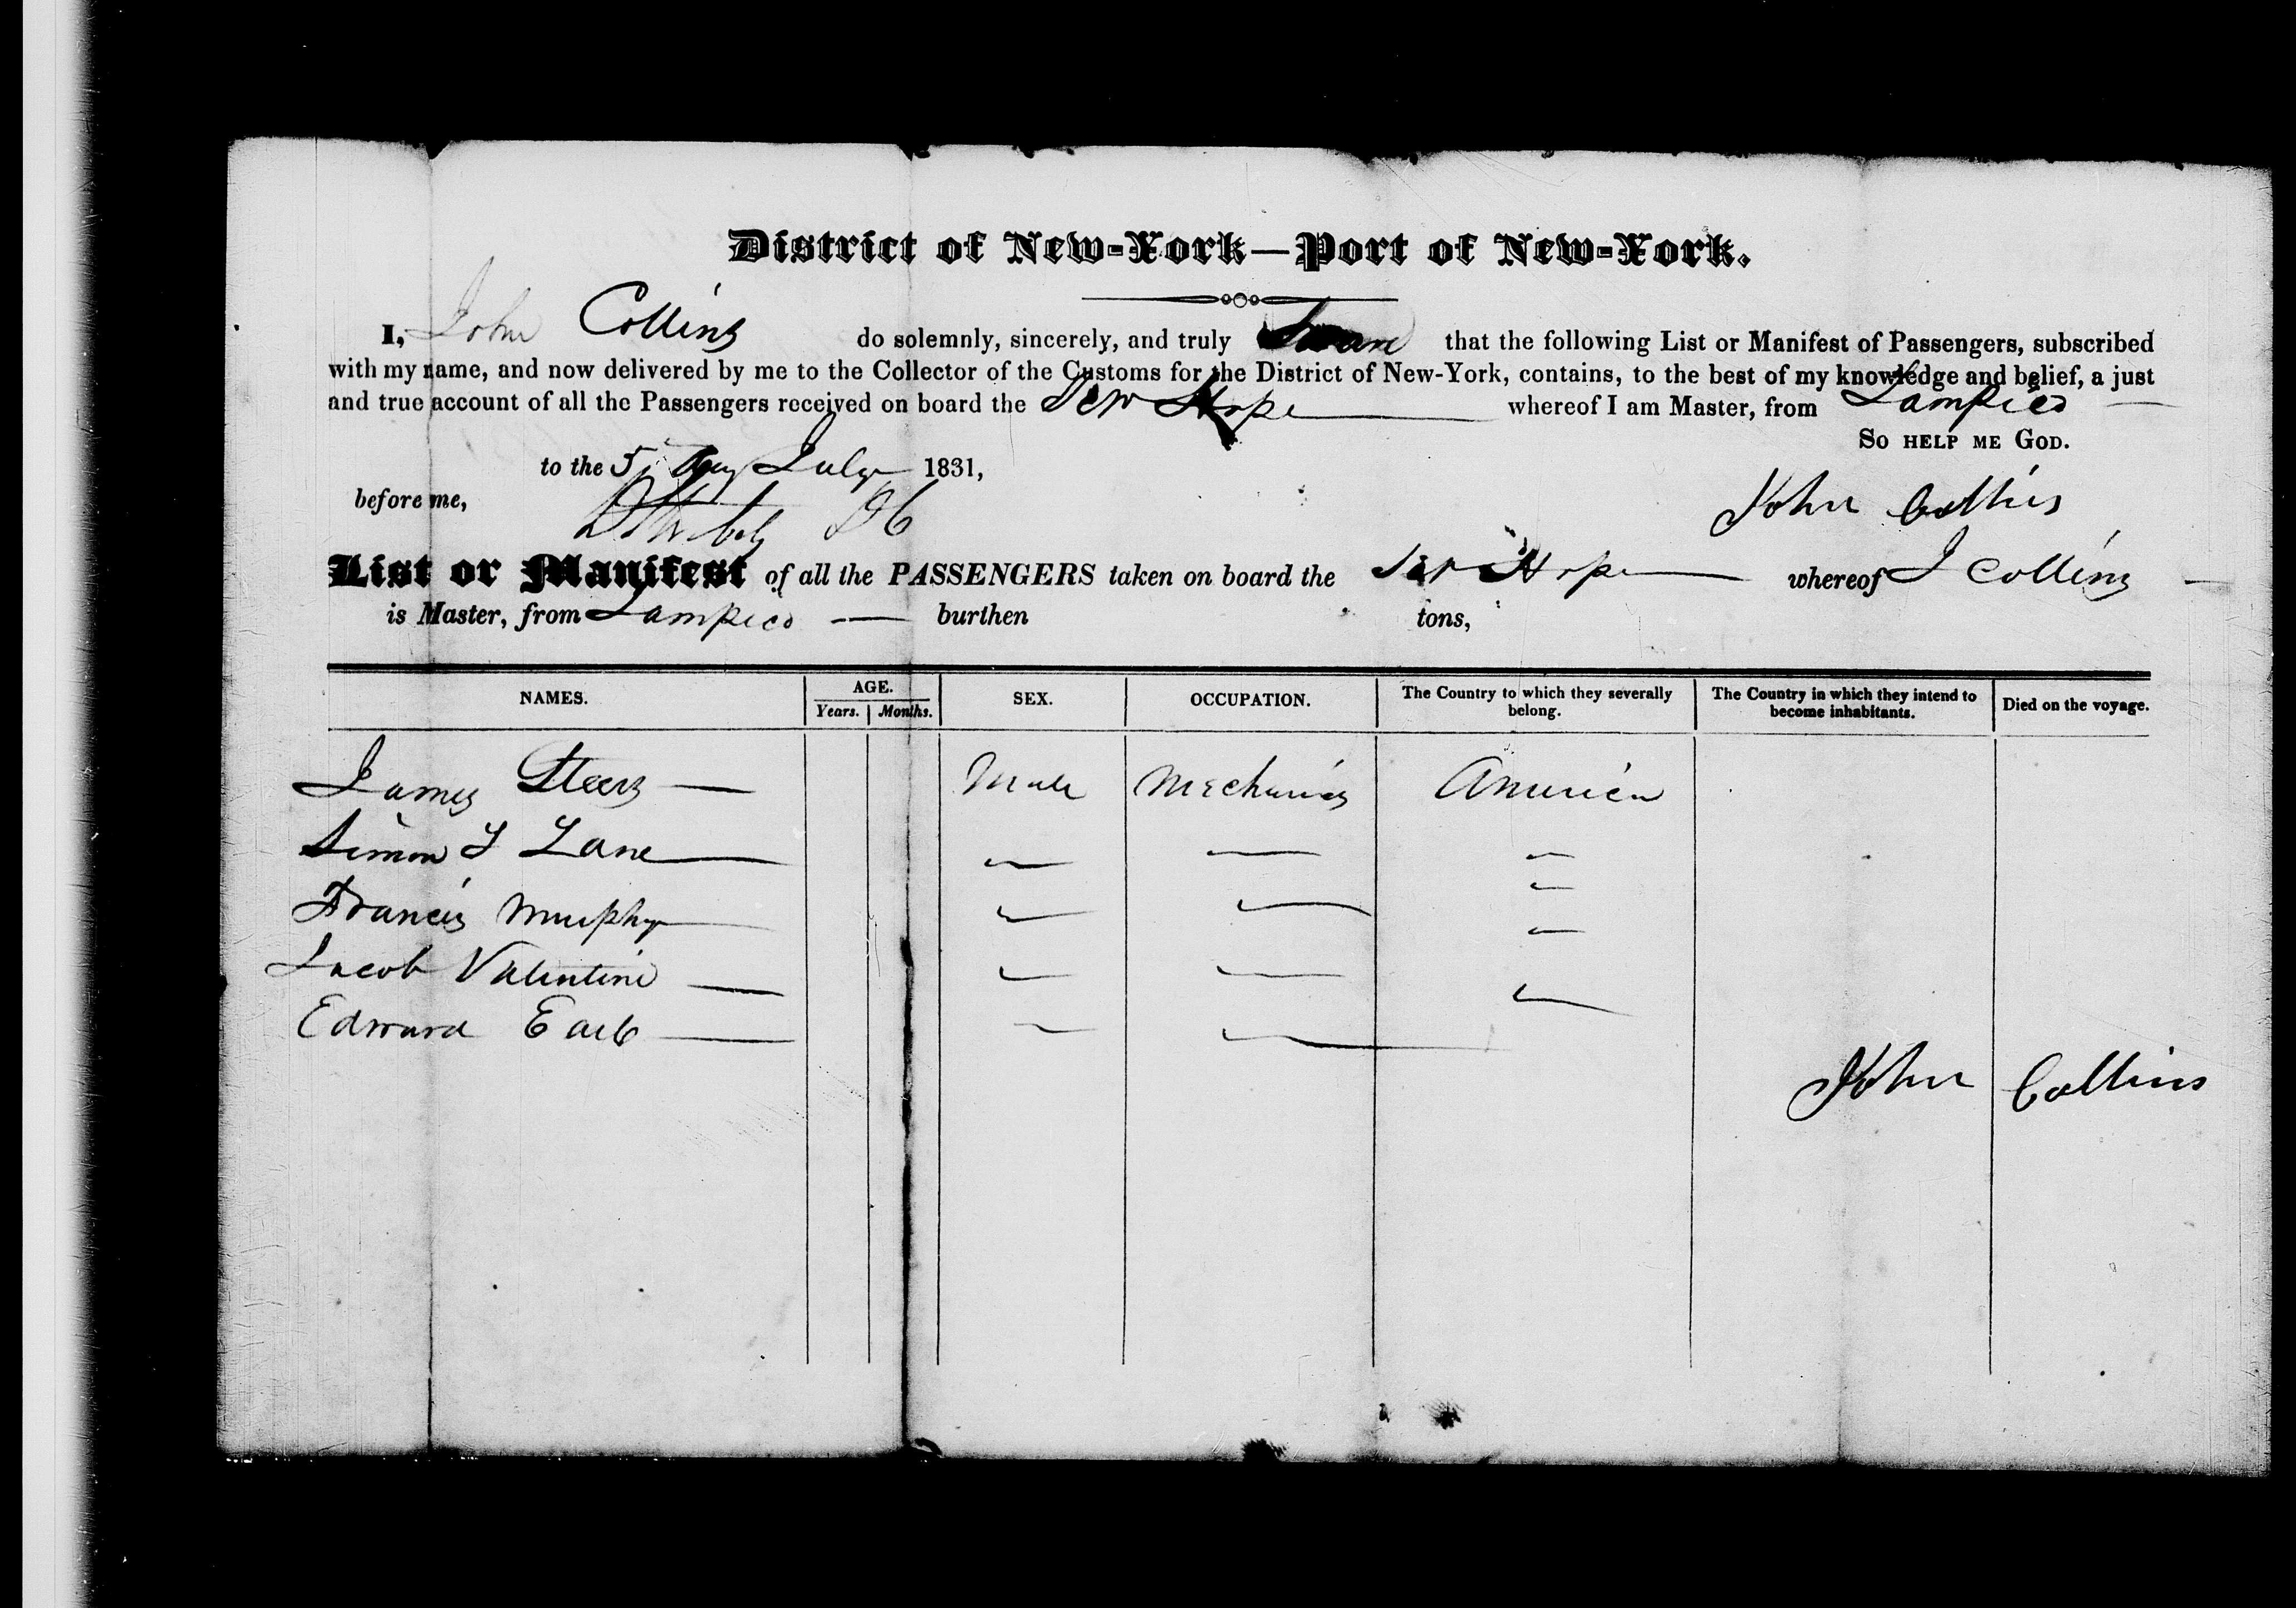 District of New-York—Port of New-York.
I, John Collins do solemnly, sincerely, and truly Swear that the following List or Manifest of Passengers, subscribed
with my name, and now delivered by me to the Collector of the Customs for the District of New-York, contains, to the best of my knowledge and belief, a just
and true account of all the Passengers received on board the New Hope whereof I am Master, from Tampico
So help me God.
to the 5 July 1831,
before me,
John Collins
List or Manifest of all the PASSENGERS taken on board the New Hope whereof J Collins
is Master, from Tampico burthen tons,
NAMES. AGE. SEX. OCCUPATION. The Country to which they severally belong. The Country in which they intend to become inhabitants. Died on the voyage.
Years. Months.
James Steers Male Mechanics America
Simon T Lane
Francis Murphy
Jacob Valentine
Edward Earle
John Collins